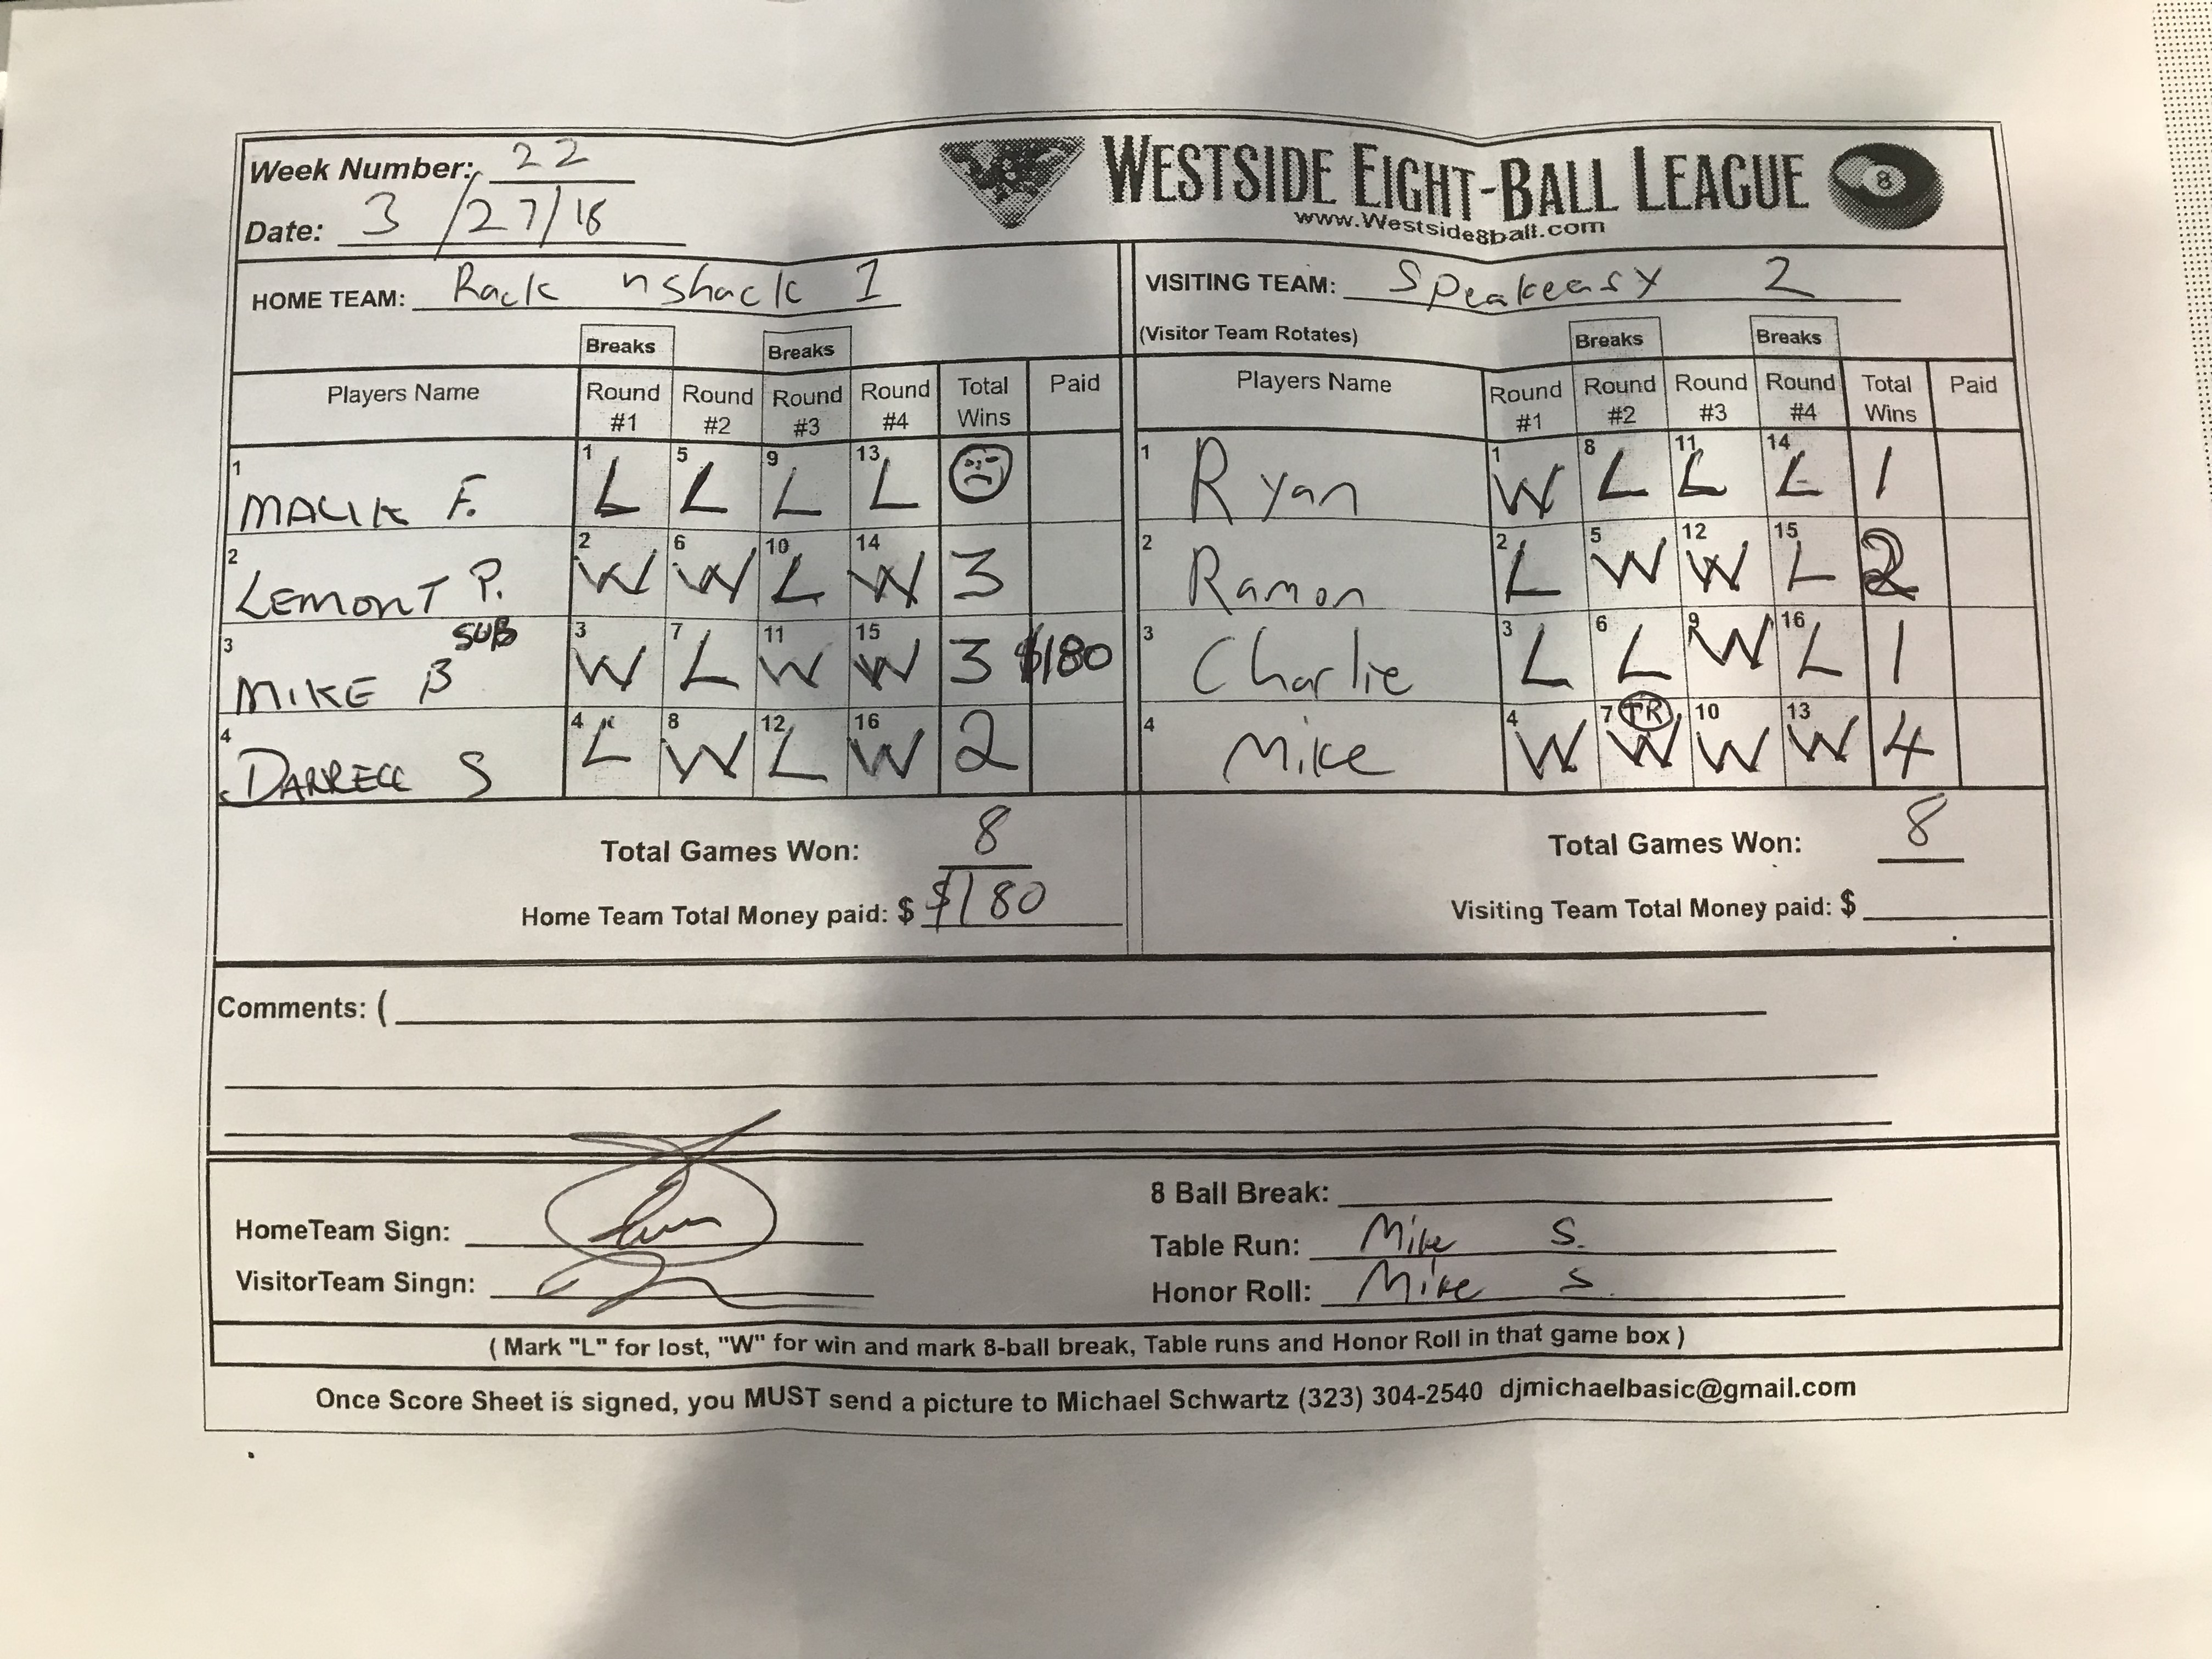 Week Number: 22
WESTSIDE EIGHT-BALL LEAGUE 8
www.Westside8ball.com
Date: 3/27/18
HOME TEAM: Rack nshack 1
VISITING TEAM: Speakeasy 2
(Visitor Team Rotates)
Breaks Breaks Breaks Breaks
Players Name Round #1 Round #2 Round #3 Round #4 Total Wins Paid Players Name Round #1 Round #2 Round #3 Round #4 Total Wins Paid
1 MALIK F. 1 L 5 L 9 L 13 L 1 Ryan 1 W 8 L 11 L 14 L 1
2 LEMONT P. 2 W 6 W 10 L 14 W 3 2 Ramon 2 L 5 W 12 W 15 L 2
3 MIKE B SUB 3 W 7 L 11 W 15 W 3 $180 3 Charlie 3 L 6 L 9 W 16 L 1
4 DARRELL S 4 L 8 W 12 L 16 W 2 4 Mike 4 W 7 TR W 10 W 13 W 4
Total Games Won: 8 Total Games Won: 8
Home Team Total Money paid: $ $180 Visiting Team Total Money paid: $
Comments: (
8 Ball Break:
HomeTeam Sign: Table Run: Mike S.
VisitorTeam Singn: Honor Roll: Mike S.
( Mark "L" for lost, "W" for win and mark 8-ball break, Table runs and Honor Roll in that game box )
Once Score Sheet is signed, you MUST send a picture to Michael Schwartz (323) 304-2540 djmichaelbasic@gmail.com